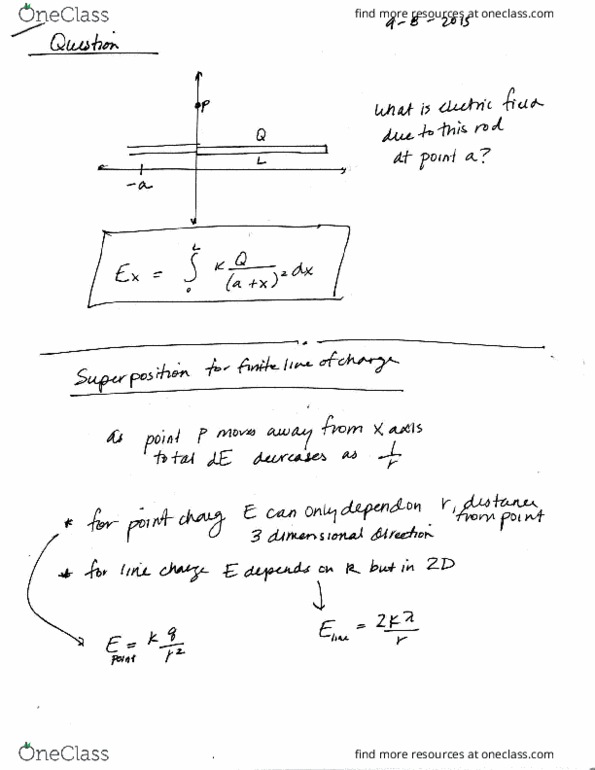 OneClass
find more resources at oneclass.com
9-8-2015
Question
P
Q
L
-a
What is electric field
due to this rod
at point a?
Ex = ∫₀ᴸ k Q/(a+x)² dx
Superposition for finite line of charge
as point P moves away from x axis
total dE decreases as 1/r
* for point charg E can only depend on r, distance
from point
3 dimensional direction
* for line charge E depends on R but in 2D
E point = k q/r²
E line = 2kλ/r
OneClass
find more resources at oneclass.com